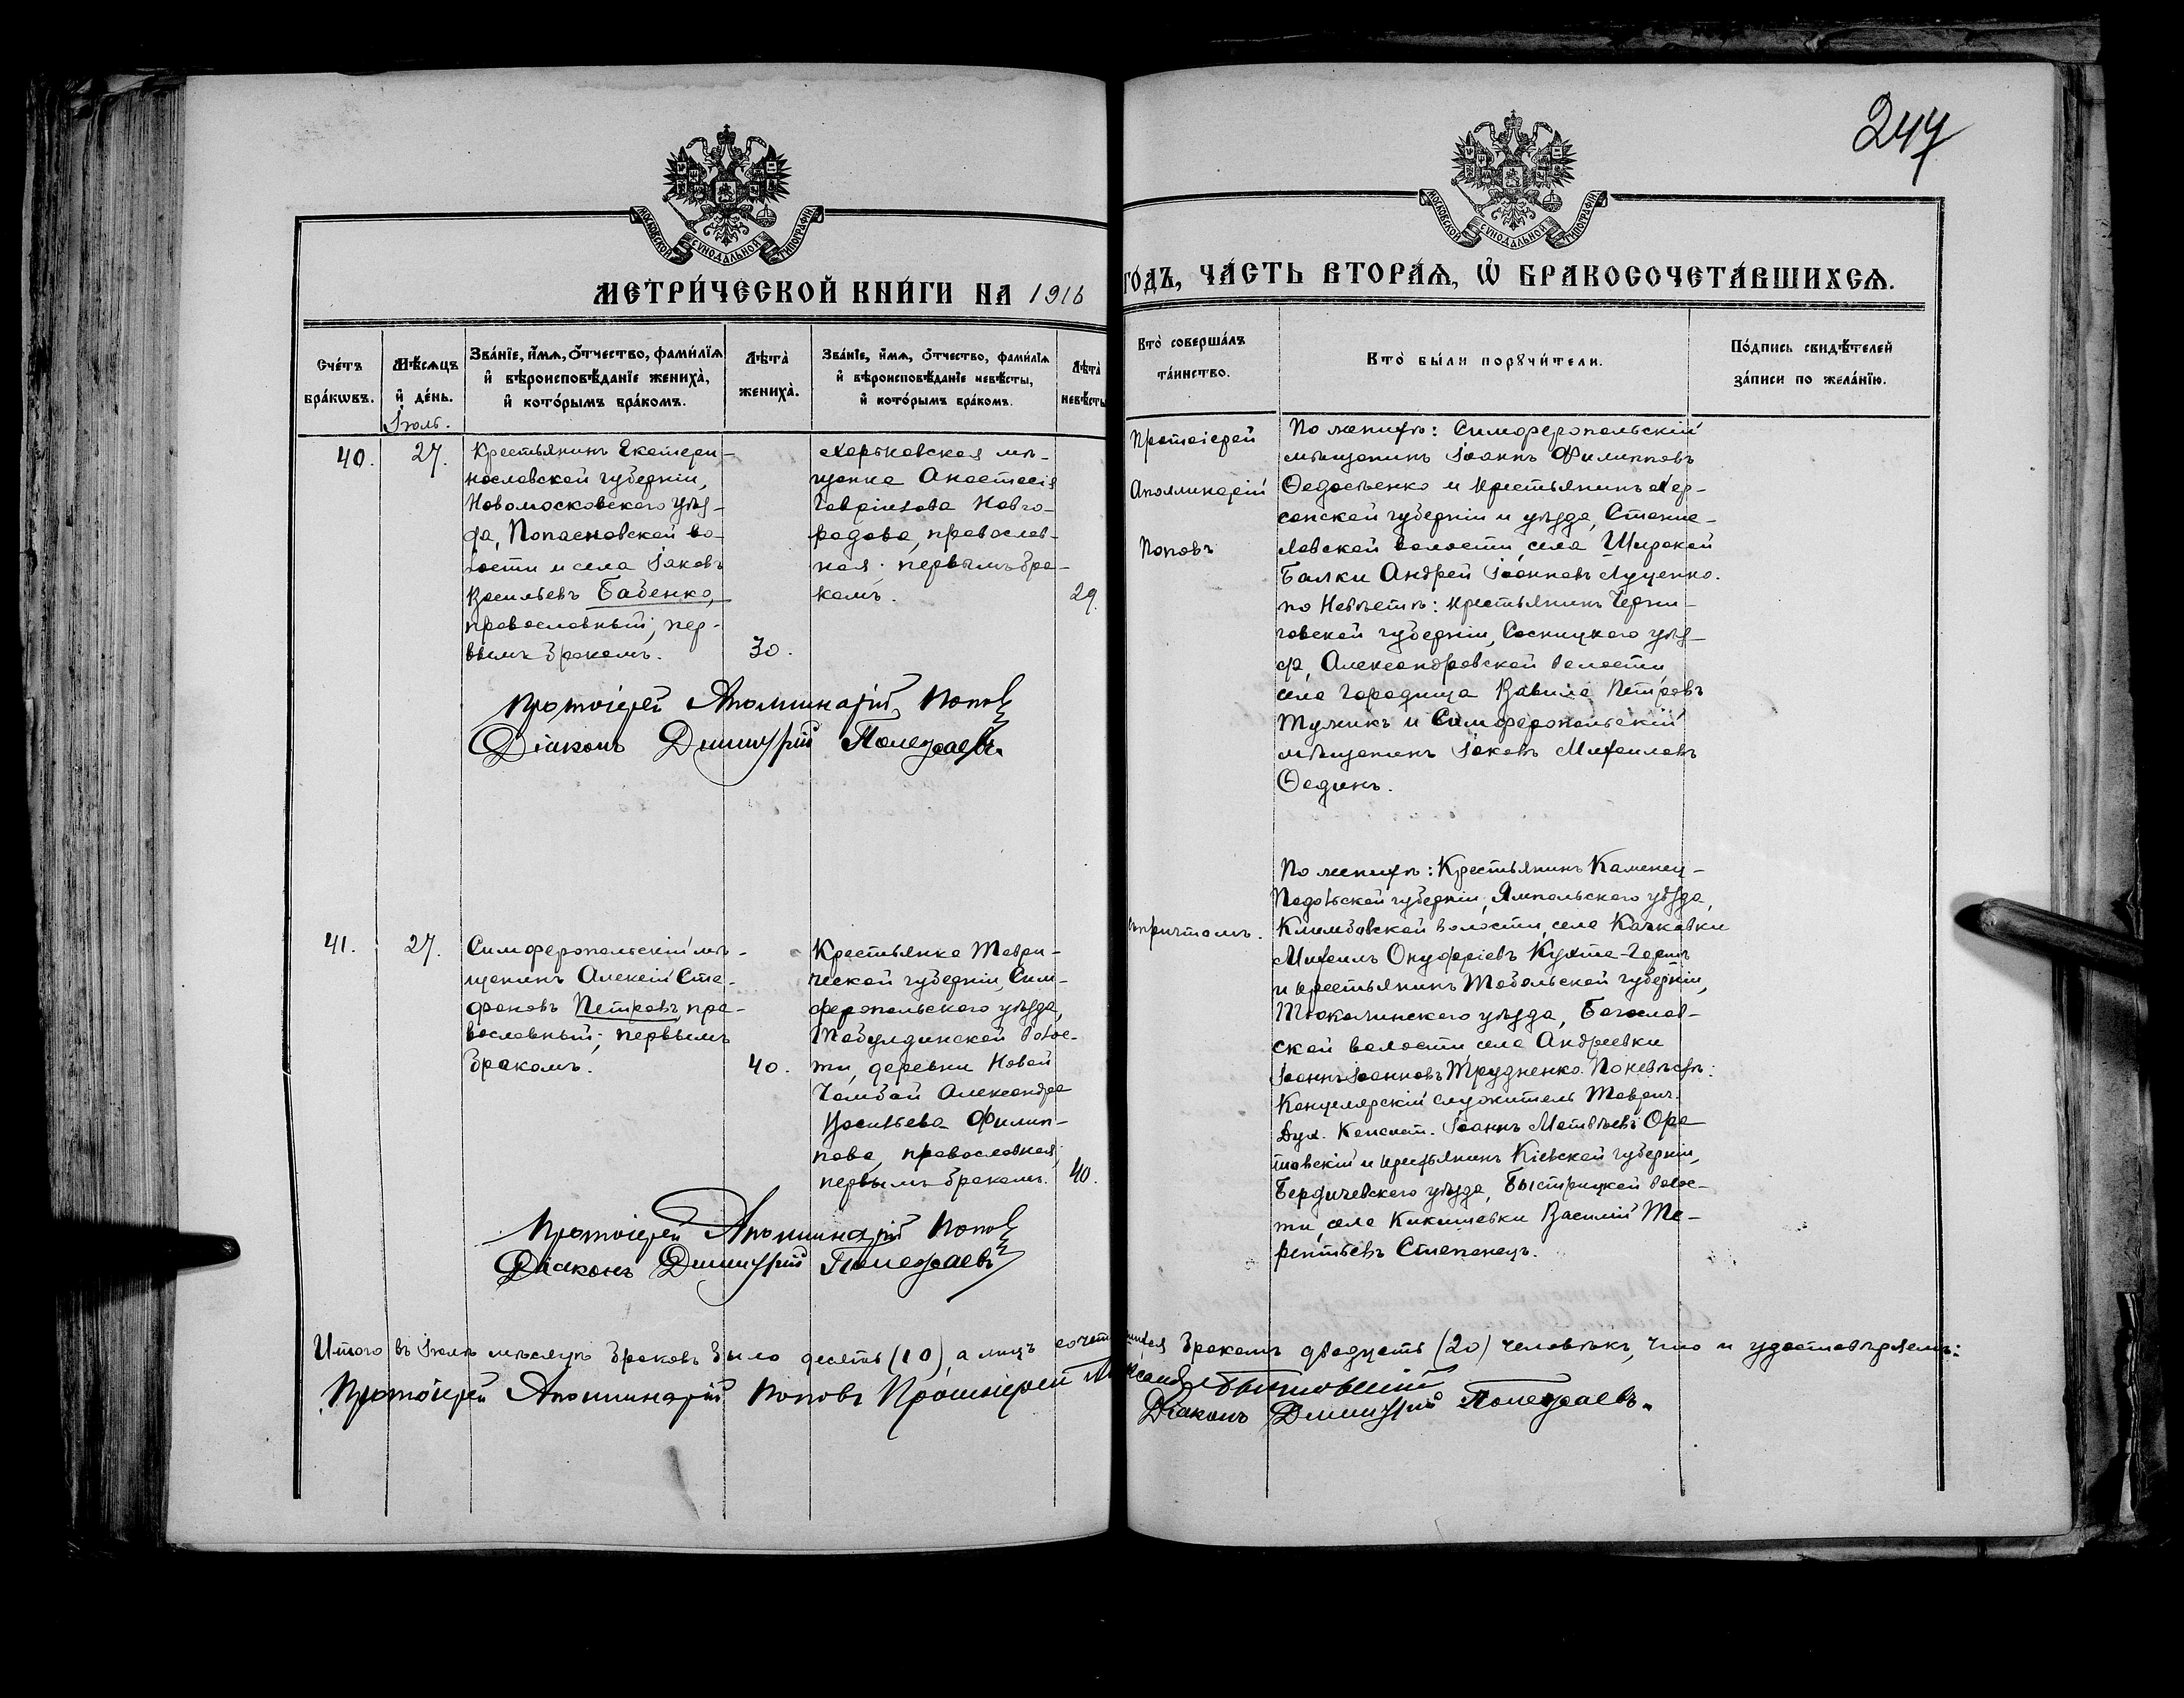 247
МОСКОВСКОЙ СѴНОДАЛЬНОЙ ТИПОГРАФІИ.
МОСКОВСКОЙ СѴНОДАЛЬНОЙ ТИПОГРАФІИ.
МЕТРИ́ЧЕСКОЙ КНИ́ГИ НА 1916 ГО́ДЪ, ЧА́СТЬ ВТОРА́Ѧ, Ѽ БРАКОСОЧЕТА́ВШИХСѦ.
Сче́тъ бра́кѡвъ.
Мѣ́сяцъ и де́нь.
Зва́нїе, и́мѧ, ѻ́тчество, фами́лїѧ и вѣроисповѣ́данїе жениха̀, и кото́рымъ бра́комъ.
Лѣта̀ жениха̀.
Зва́нїе, и́мѧ, ѻ́тчество, фами́лїѧ и вѣроисповѣ́данїе невѣ́сты, и кото́рымъ бра́комъ.
Лѣта̀ невѣ́сты
Кто̀ соверша́лъ та́инство.
Кто̀ бы́ли порꙋчи́тели.
По́дпись свидѣ́телей за́писи по жела́нїю.
Іюль.
40.
27.
Крестьянинъ Екатери-
нославской губерніи,
Новомосковского уѣз-
да, Попасновской во-
лости и села Іаковъ
Васильевъ Бабенко,
православный; пер-
вымъ бракомъ.
30.
Харьковская мѣ-
щанка Анастасія
Гавріилова Навго-
родова, православ-
ная; первымъ бра-
комъ.
29.
Протоіерей
Аполлинарій
Поповъ
По женихѣ: Симферопольскій
мѣщанинъ Іоаннъ Филипповъ
Ѳедосѣенко и крестьянинъ Хер-
сонской губерніи и уѣзда, Станис-
лавской волости, села Широкой
Балки Андрей Іоанновъ Луценко.
по Невѣстѣ: крестьянинъ Черни-
говской губерніи, Сосницкаго уѣз-
да, Александровской волости
села Городища Вавила Петровъ
Тужикъ и Симферопольскій
мѣщанинъ Іаковъ Михаиловъ
Ѳединъ.
Протоіерей Аполлинарій Поповъ
Діаконъ Димитрій Полежаевъ.
41.
27.
Симферопольскій мѣ-
щанинъ Алексій Сте-
фановъ Петровъ, пра-
вославный; первымъ
бракомъ.
40.
Крестьянка Таври-
ческой губерніи, Сим-
феропольского уѣзда,
Табулдинской волос-
ти, деревни Новой
Чамбай Александра
Васильева Филип-
пова, православная;
первымъ бракомъ.
40.
съ причтомъ.
По женихѣ: Крестьянинъ Каменец-
Подольской губерніи, Ямпольского уѣзда,
Клембовской волости, села Качковки
Михаилъ Онуфріевъ
и крестьянинъ Тобольской губерніи,
Тюкалинского уѣзда, Богослов-
ской волости села Андреевки
Іоаннъ Іоанновъ Трудненко. По невѣстѣ:
Канцелярскій служитель Таврич.
Дух. Консист. Іоаннъ Матвѣевъ Ора
товскій и крестьянинъ Кіевской губерніи,
Бердичевского уѣзда, Быстрицкой волос-
ти, села Кикишевки Василій Те-
рентьевъ Степанецъ.
Протоіерей Аполлинарій Поповъ
Діаконъ Димитрій Полежаевъ
Итого въ Іюлѣ мѣсяцѣ браковъ было десять (10), а лицъ сочетавшихся бракомъ двадцать (20) человѣкъ, что и удостовѣряемъ:
Протоіерей Аполлинарій Поповъ Протоіерей
Діаконъ Димитрій Полежаевъ.